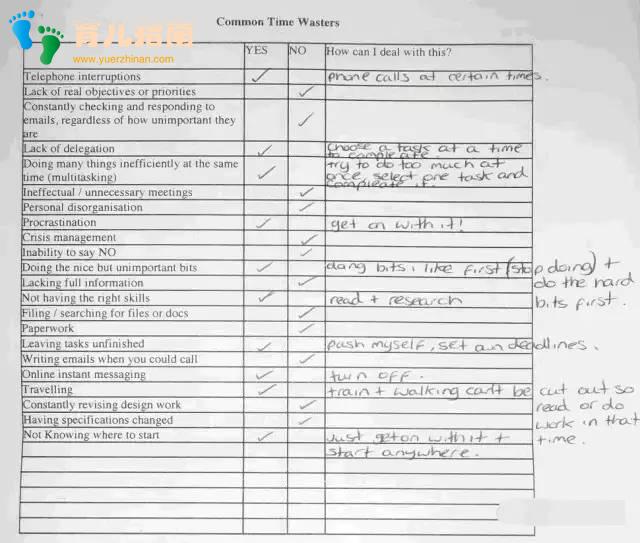 Common Time Wasters
育儿指南
www.yuerzhinan.com
YES NO How can I deal with this?
Telephone interruptions ✓ phone calls at certain times.
Lack of real objectives or priorities ✓
Constantly checking and responding to
emails, regardless of how unimportant they ✓
are
Lack of delegation ✓ choose a task at a time
to compleate.
Doing many things inefficiently at the same try to do too much at
time (multitasking) ✓ once, select one task and
compleate it.
Ineffectual / unnecessary meetings ✓
Personal disorganisation ✓
Procrastination ✓ get on with it!
Crisis management ✓
Inability to say NO ✓
Doing the nice but unimportant bits ✓ doing bits i like first (stop doing) +
Lacking full information ✓ do the hard
Not having the right skills ✓ read + research bits first.
Filing / searching for files or docs ✓
Paperwork ✓
Leaving tasks unfinished ✓ push myself, set own deadlines.
Writing emails when you could call ✓
Online instant messaging ✓ turn off.
Travelling ✓ train + walking can't be cut out so
Constantly revising design work ✓ read or do
Having specifications changed ✓ work in that
Not Knowing where to start ✓ Just get on with it + time.
start anywhere.